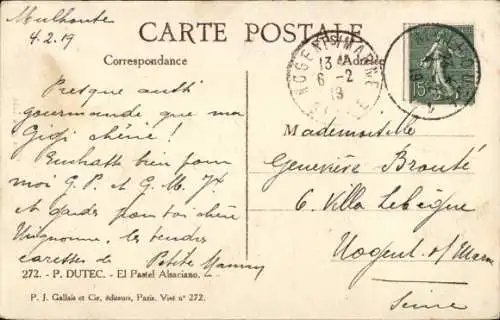 Mulhouse
4.2.19
CARTE POSTALE
Correspondance
Adresse
NOGENT S/MARNE
13
6-2
19
SEINE
15
Presque aussi
gourmande que ma
Gigi chérie !
Embrasse bien pour
moi G. P. et G. M.
et gardes pour toi chère
Mignonne, les tendres
caresses de Petite Mamy
Mademoiselle
Geneviève Brouté
6. Villa Lebègue
Nogent s/ Marne
Seine
272. - P. DUTEC. - El Pastel Alsaciano.
P. J. Gallais et Cie, éditeurs, Paris. Visé nº 272.